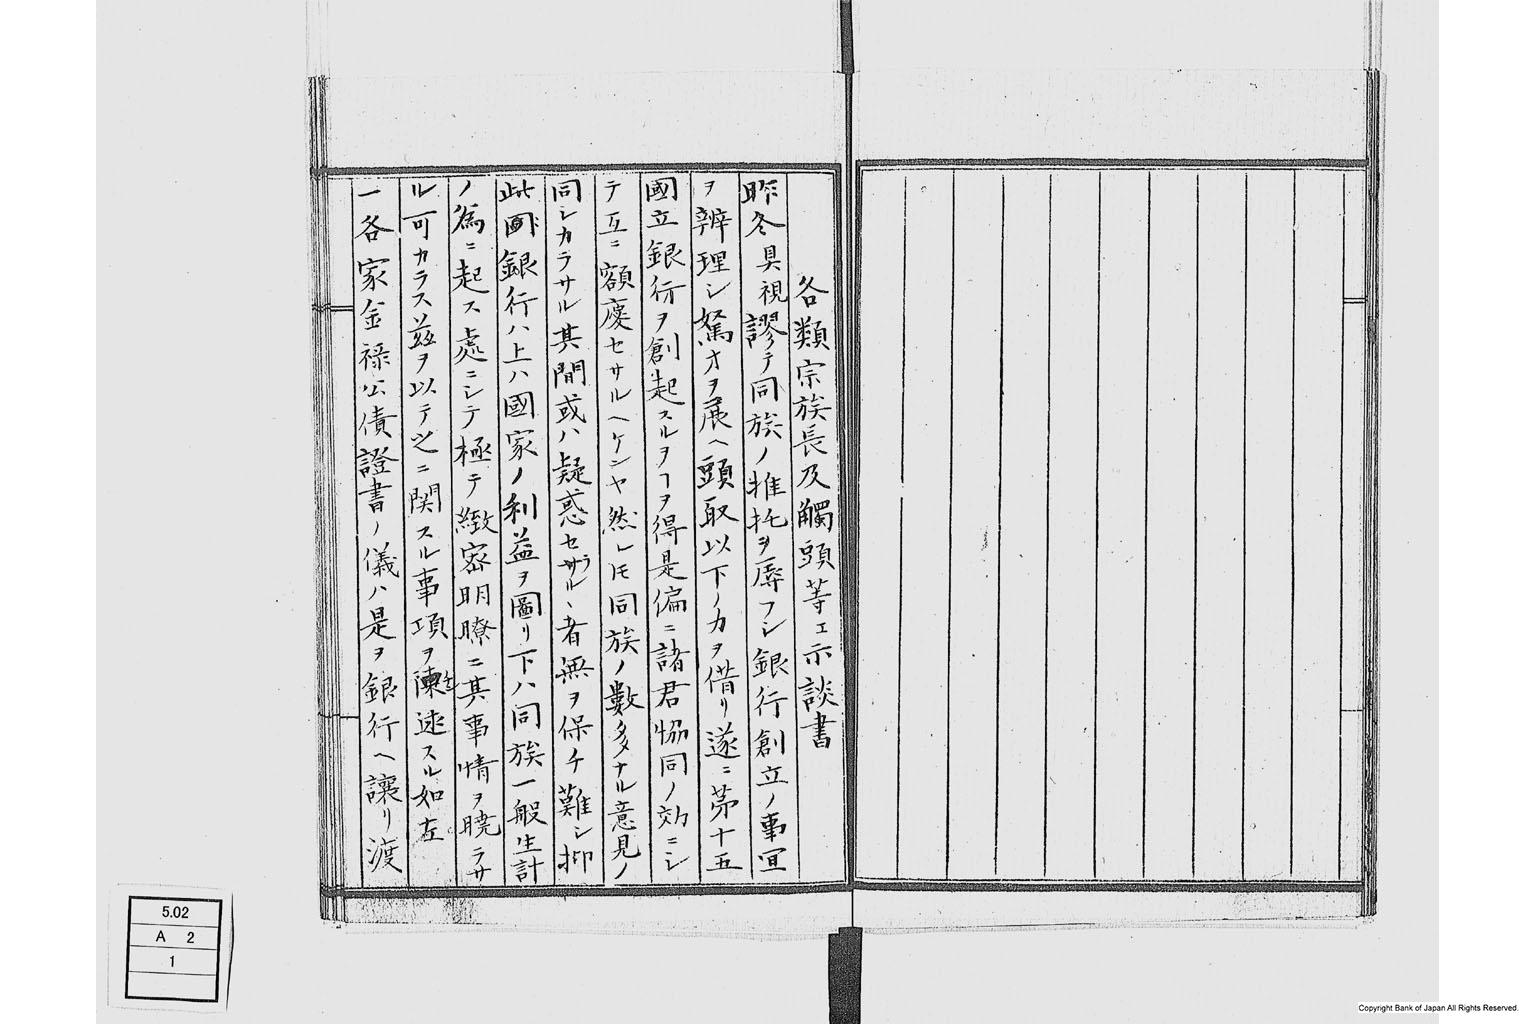 各類宗族長及觸頭等エ示談書
昨冬具視謬テ同族ノ推托ヲ辱フシ銀行創立ノ事冝
ヲ辨理シ駑才ヲ展ヘ頭取以下ノ力ヲ借リ遂ニ苐十五
國立銀行ヲ創起スルヲヿヲ得是偏ニ諸君協同ノ効ニシ
テ互ニ額慶セサルヘケンヤ然レ𪜈同族ノ數多ナル意見ノ
同シカラサル其間或ハ疑惑セサラル丶者無ヲ保チ難シ抑
此銀行ハ上ハ國家ノ利益ヲ圖リ下ハ同族一般生計
ノ為ニ起ス處ニシテ極テ緻密明瞭ニ其事情ヲ曉ラサ
ル可カラス茲ヲ以テ之ニ関スル事項ヲ陳述スル如左
一各家金祿公債證書ノ儀ハ是ヲ銀行ヘ讓リ渡
5.02
A 2
1
Copyright Bank of Japan All Rights Reserved.